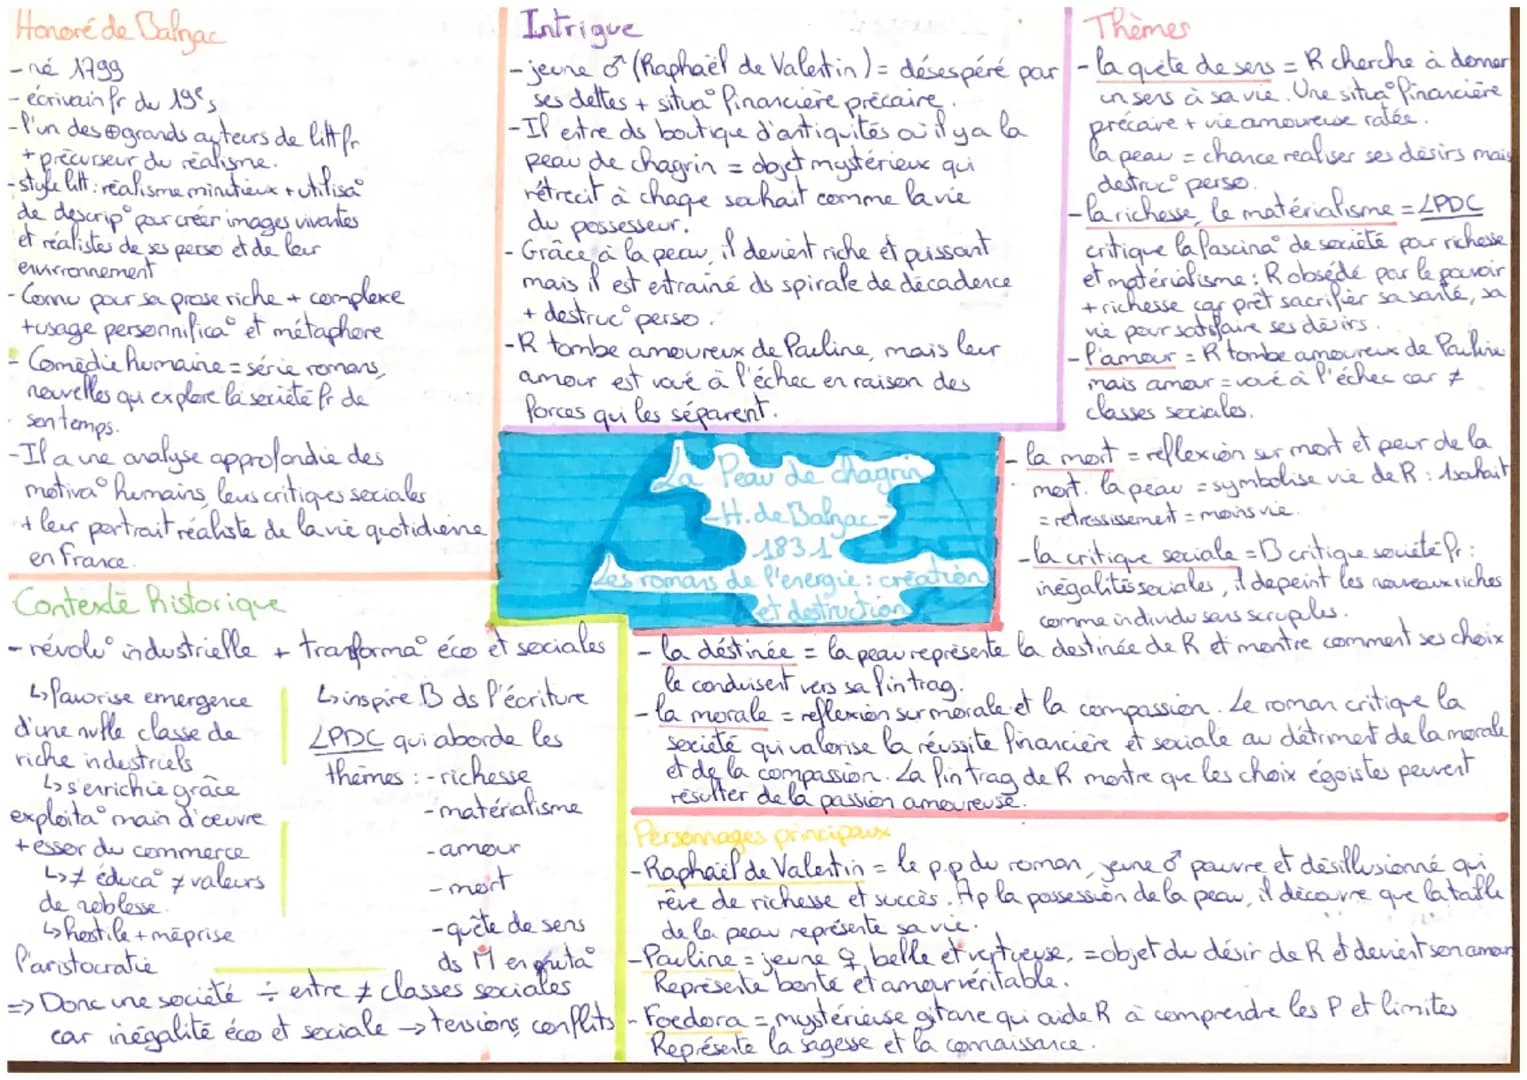 Honoré de Balzac
- né 1799
- écrivain fr du 19e s
- l'un des ⊕ grands auteurs de litt fr
+ précurseur du réalisme.
- style litt : réalisme minutieux + utilisa°
de descrip° pour créer images vivantes
et réalistes de ses perso et de leur
environnement
- Connu pour sa prose riche + complexe
+ usage personnifica° et métaphore
- Comédie humaine = série romans,
nouvelles qui explore la société fr de
son temps.
- Il a une analyse approfondie des
motiva° humains, leurs critiques sociales
+ leur portrait réaliste de la vie quotidienne
en France.
Contexte historique
- révolu° industrielle + transforma° éco et sociales
↳ favorise emergence
d'une nvlle classe de
riche industriels
↳ s'enrichie grâce
exploita° main d'œuvre
+ essor du commerce
↳ ≠ éduca° ≠ valeurs
de noblesse.
↳ hostile + méprise
l'aristocratie
↳ inspire B ds l'écriture
LPDC qui aborde les
thèmes : - richesse
- matérialisme
- amour
- mort
- quête de sens
ds M en muta°
=> Donc une société ÷ entre ≠ classes sociales
car inégalité éco et sociale → tensions, conflits
Intrigue
- jeune ♂ (Raphaël de Valentin) = désespéré par
ses dettes + situa° financière précaire.
- Il entre ds boutique d'antiquités où il y a la
peau de chagrin = objet mystérieux qui
rétrecit à chaque souhait comme la vie
du possesseur.
- Grâce à la peau, il devient riche et puissant
mais il est entrainé ds spirale de décadence
+ destruc° perso.
- R tombe amoureux de Pauline, mais leur
amour est voué à l'échec en raison des
forces qui les séparent.
La Peau de chagrin
- H. de Balzac -
1831
Les romans de l'énergie : création
et destruction
Thèmes
- la quête de sens = R cherche à donner
un sens à sa vie. Une situa° financière
précaire + vie amoureuse ratée.
la peau = chance réaliser ses désirs mais
destruc° perso.
- la richesse, le matérialisme = LPDC
critique la fascina° de société pour richesse
et matérialisme : R obsédé par le pouvoir
+ richesse car prêt sacrifier sa santé, sa
vie pour satisfaire ses désirs.
- l'amour = R tombe amoureux de Pauline
mais amour = voué à l'échec car ≠
classes sociales.
- la mort = réflexion sur mort et peur de la
mort. la peau = symbolise vie de R : 1 souhait
= retressissement = moins vie.
- la critique sociale = B critique société fr :
inégalités sociales, il depeint les nouveaux riches
comme individu sans scrupules.
- la déstinée = la peau représente la destinée de R et montre comment ses choix
le conduisent vers sa fin trag.
- la morale = réflexion sur morale et la compassion. Le roman critique la
société qui valorise la réussite financière et sociale au détriment de la morale
et de la compassion. La fin trag de R montre que les choix égoistes peuvent
résulter de la passion amoureuse.
Personnages principaux
- Raphaël de Valentin = le p.p du roman, jeune ♂ pauvre et désillusionné qui
rêve de richesse et succès. Ap la possession de la peau, il découvre que la taille
de la peau représente sa vie.
- Pauline = jeune ♀ belle et vertueuse, = objet du désir de R et devient son amour
Représente bonté et amour véritable.
- Foedora = mystérieuse gitane qui aide R à comprendre les P et limites
Représente la sagesse et la connaissance.